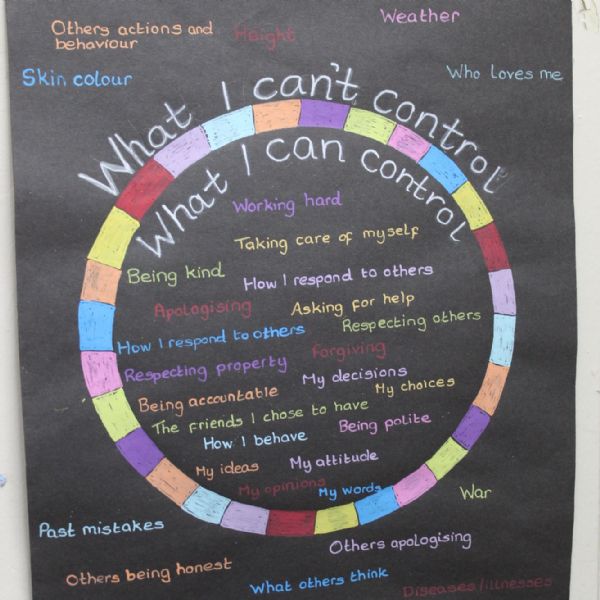 Weather
Others actions and
behaviour
Height
Skin colour
Who loves me
What I can't control
What I can control
Working hard
Taking care of myself
Being kind
How I respond to others
Apologising
Asking for help
How I respond to others
Respecting others
Respecting property
Forgiving
My decisions
My choices
Being accountable
The friends I chose to have
Being polite
How I behave
My ideas
My attitude
My opinions
My words
War
Past mistakes
Others apologising
Others being honest
What others think
Diseases/illnesses